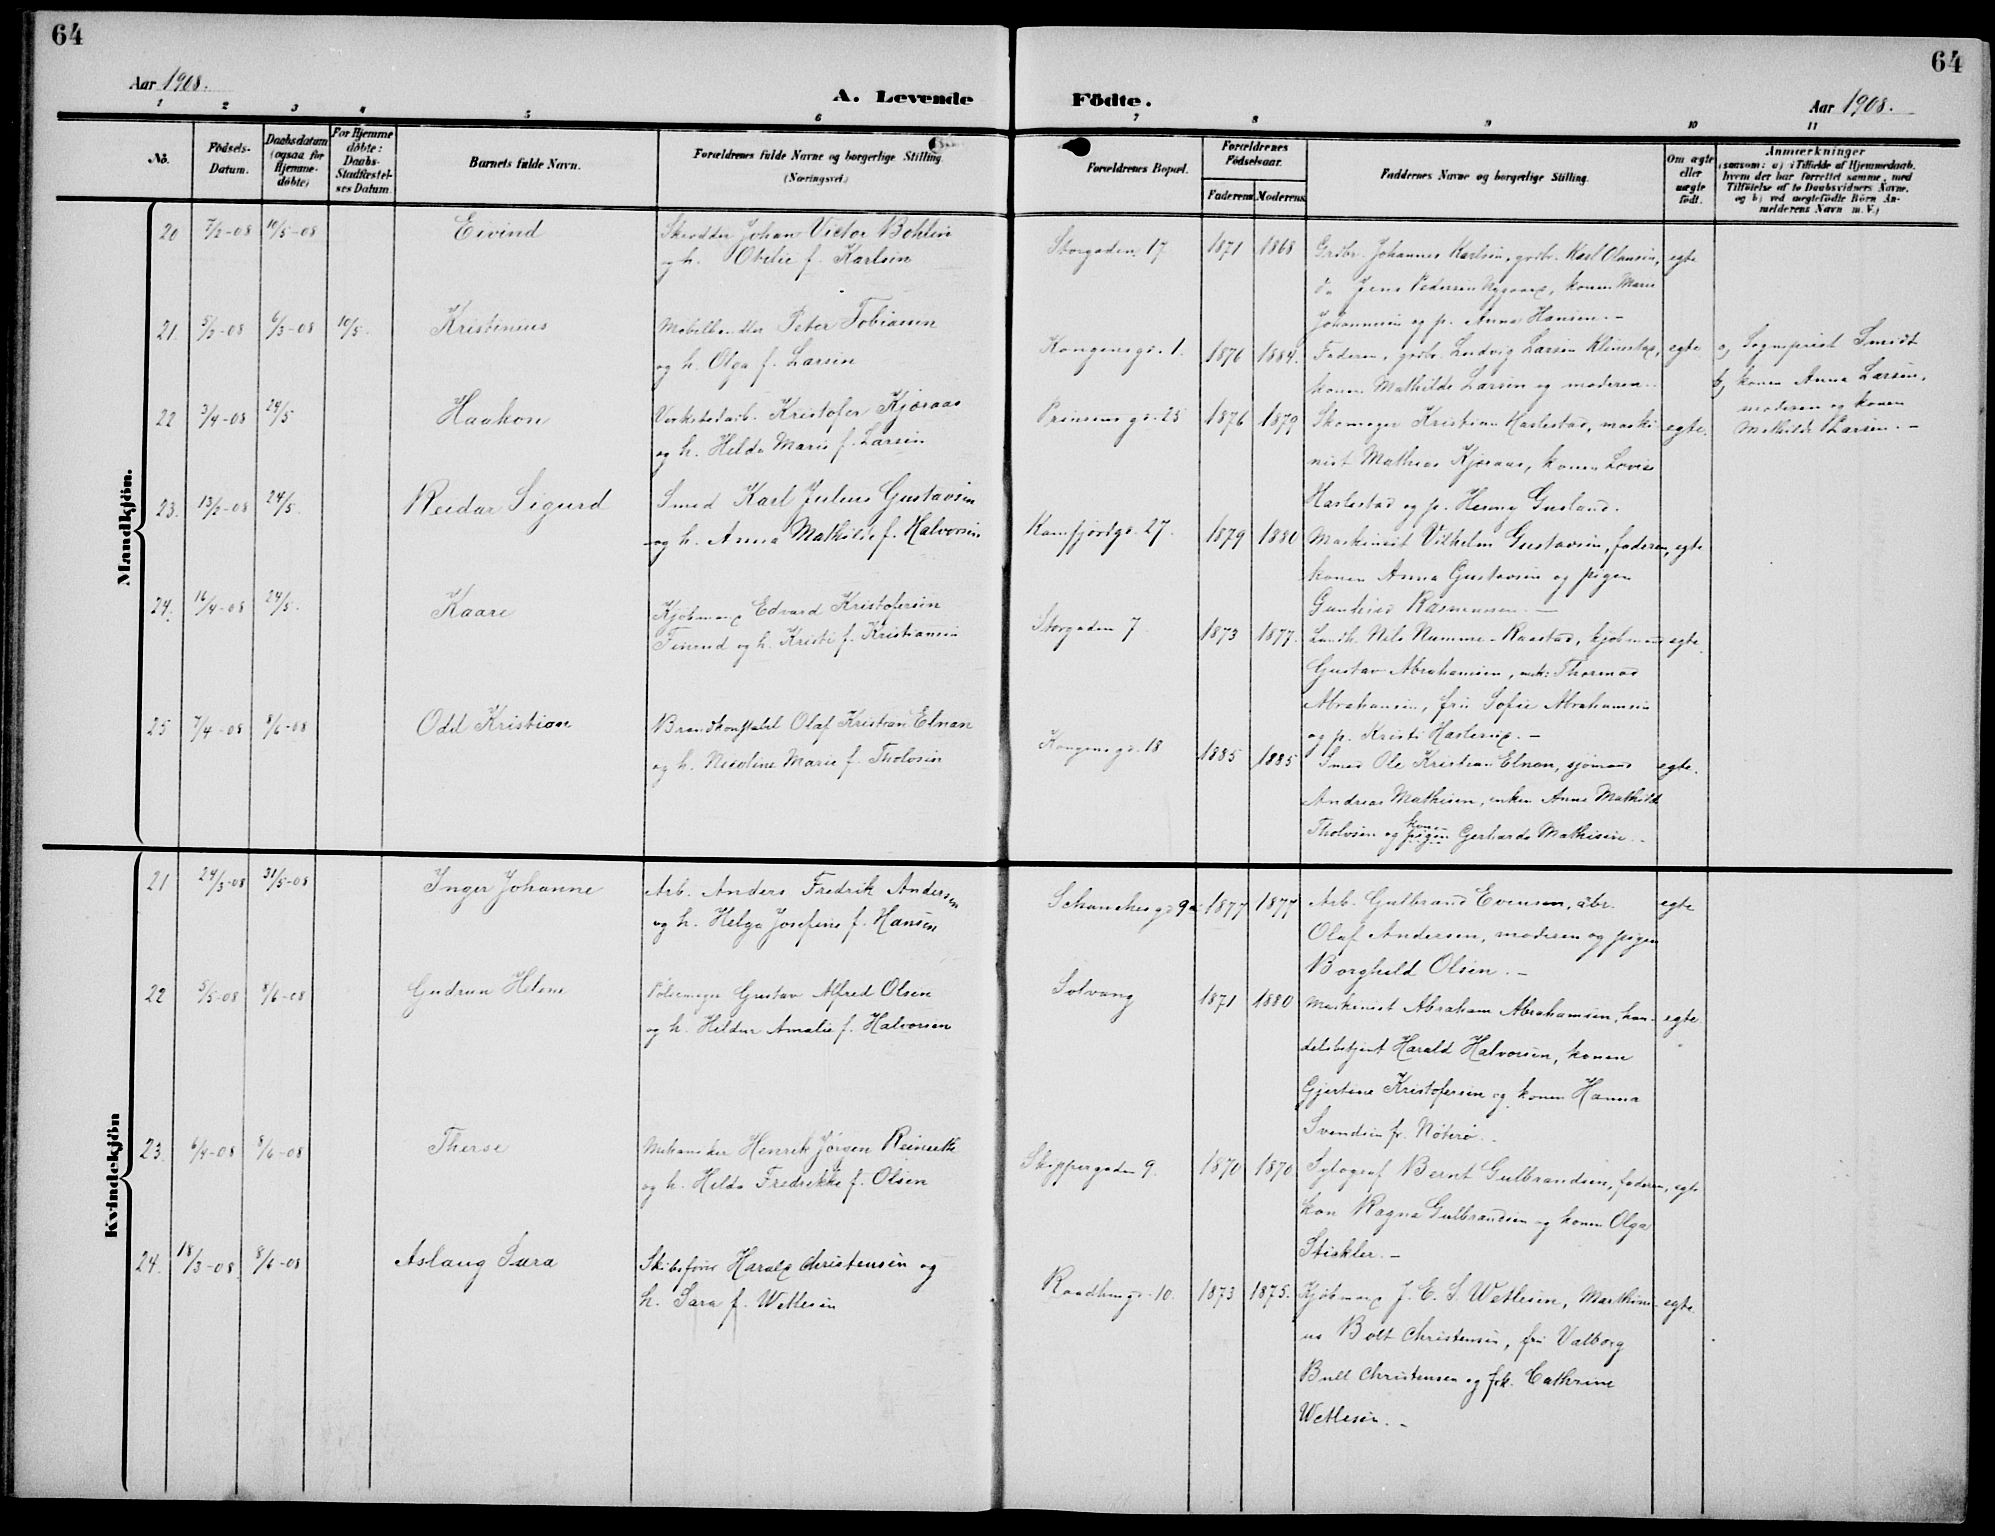 64
64
Aar 1908.
A. Levende
Födte.
Aar 1908.
1 2 3 4 5 6 7 8 9 10 11
No.
Födsels-
Datum.
Daabsdatum
(ogsaa for
Hjemme-
döbte)
For Hjemme
döbte:
Daabs-
Stadfæstel-
ses Datum.
Barnets fulde Navn.
Forældrenes fulde Navne og borgerlige Stilling
(Næringsvei.)
Forældrenes Bopæl.
Forældrenes
Födselsaar.
Faderens
Moderens
Faddernes Navne og borgerlige Stilling.
Om ægte
eller
uægte
födt.
Anmærkninger
(saasom: a) i Tilfælde af Hjemmedaab,
hvem der har forrettet samme, med
Tilföielse af to Daabsvidners Navne,
og b) ved uægtefödte Börn An-
melderens Navn m. V.)
Mandkjön.
20 7/2-08 10/5-08 Eivind
Skrædder Johan Victor Bohlin
og h. Otelie f. Karlsen
Storgaden 17 1871 1868
Grdbr. Johannes Karlsen, grdbr. Karl Olausen,
do Jens Pedersen Nygaard, konen Marie
Johannesen og p. Anna Hansen. -
egte
21 5/2-08 6/3-08 10/5. Kristinius
Møbelhandler Peter Tobiassen
og h. Olga f. Larsen
Kongensgd. 1. 1876 1884.
Faderen, grdbr. Ludvig Larsen Klinestad,
konen Mathilde Larsen og moderen.
egte
a, Sogneprest Smidt
b, konen Anna Larsen,
moderen og konen
Mathilde Larsen. -
22 3/4-08 24/5 Haakon
Verkstedarb. Kristofer Kjøraas
og h. Helda Marie f. Larsen
Prinsensgd. 25 1876 1879
Skomager Kristian Haslestad, maski
nist Mathias Kjøraas, konen Lovise
Haslestad og p. Henny Gusland.
egte.
23. 13/2-08 24/5. Reidar Sigurd
Smed Karl Julius Gustavsen
og h. Anna Mathilde f. Halvorsen
Kamfjordgd. 27. 1879 1880
Maskinist Vilhelm Gustavsen, faderen,
konen Anna Gustavsen og pigen
Gunhild Rasmussen. -
egte
24. 16/4-08 24/5. Kaare
Kjøbmand Edvard Kristofersen
Tinend og h. Kristi f. Kristiansen
Storgaden 7. 1873 1877.
Landh. Nils Numme-Raastad, kjøbmand
Gustav Abrahamsen, Thormod
Abrahamsen, frú Sofie Abrahamsen
og p. Kristi Hasterud. -
egte.
25 7/4-08 8/6-08 Odd Kristian
Brandkonstabel Olaf Kristian Elnan
og h. Nicoline Marie f. Tholvsen
Kongensgd. 18 1885 1885
Smed Ole Kristian Elnan, sjømand
Andreas Mathisen, enken Anne Mathilde
Tholvsen og pigen kone Gerharda Mathisen. -
egte.
Kvindekjön
21 24/3-08 31/5-08 Inger Johanne
Arb. Anders Fredrik Andersen
og h. Helga Josefine f. Hansen
Schanchesgd 9a 1877 1877
Arb. Gulbrand Evensen, arbr.
Olaf Andersen, moderen og pigen
Borghild Olsen. -
egte
22 5/5-08 8/6-08 Gudrun Helene
Pølsemager Gustav Alfred Olsen
og h. Hildur Amalie f. Halvorsen
Solvang 1871 1880
Maskinist Abraham Abrahamsen, han-
delsbetjent Harald Halvorsen, konen
Gjertine Kristofersen og konen Hanna
Svendsen fr. Nøterø. -
egte.
23. 6/4-08 8/6-08 Therse
Mekaniker Henrik Jørgen Reinerth
og h. Helda Fredrikke f. Olsen
Skippergaden 9. 1870 1870
Sylograf Bernt Gulbrandsen, faderen,
kon Ragna Gulbrandsen og konen Olga
Stickler. -
egte
24. 18/3-08 8/6-08 Aslaug Sara
Skibsfører Harald Christensen og
h. Sara f. Wetlesen
Raadhusgd. 10. 1873 1875.
Kjøbmand J. E. S. Wetlesen, Marthin-
us Bolt Christensen, frú Valborg
Bull Christensen og frk. Cathrine
Wetlesen. -
egte.